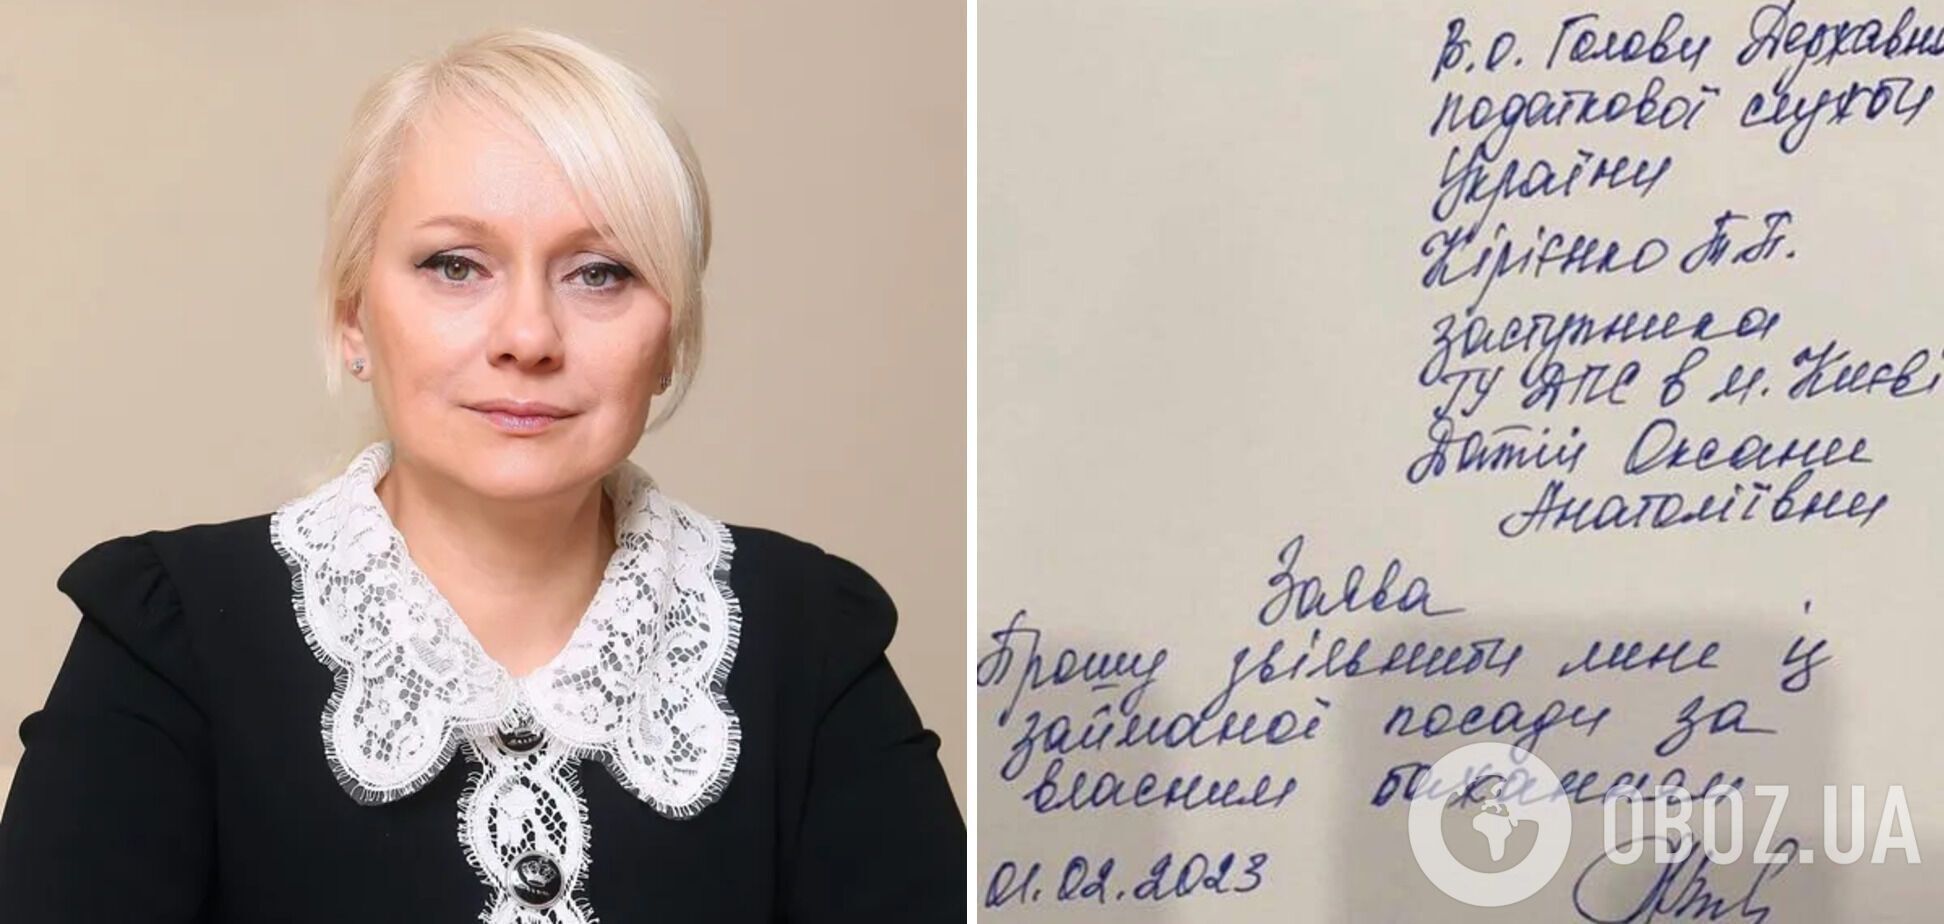 В.о. Голови Державн
податкової служби
України
Кірієнко Т.П.
заступника
ГУ ДПС в м. Києві
Датій Оксани
Анатоліївни
Заява
Прошу звільнити мене із
займаної посади за
власним бажанням
01.02.2023
OBOZ.UA